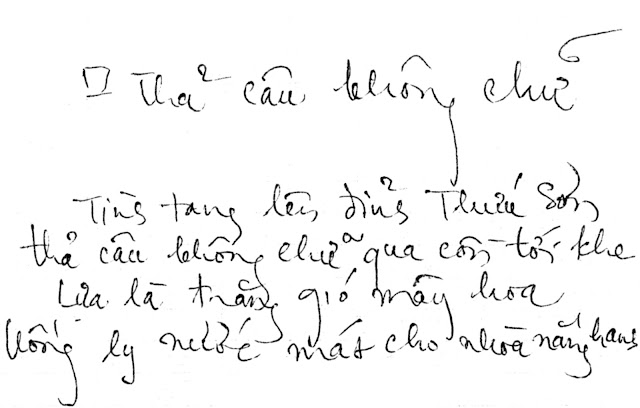 Thả câu không chữ
Tình tang lên đỉnh Thứu Sơn
thả câu không chữ qua cồn tới khe
Lụa là trăng gió mây hoa
Uống ly nước mát cho nhoà nắng hanh